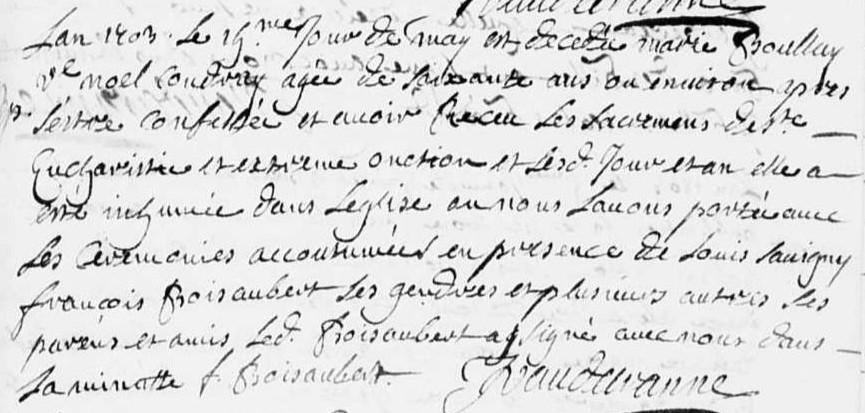 Lan 1703. Le 19.me Jour de may est decedée marie Boullay
ve noel Coudray agée de soixante ans ou environ apres
s'estre confessée et avoir Receu les sacremens de ste
Eucharistie et extreme onction et lesd. Jour et an elle a
esté inhumée dans Leglise ou nous Lavons portée avec
les Ceremonies accoutumées en presence de Louis Savigny
françois Boisaubert ses gendres et plusieurs autres ses
parens et amis led. Boisaubert a signé avec nous dans
La minotte f. Boisaubert.